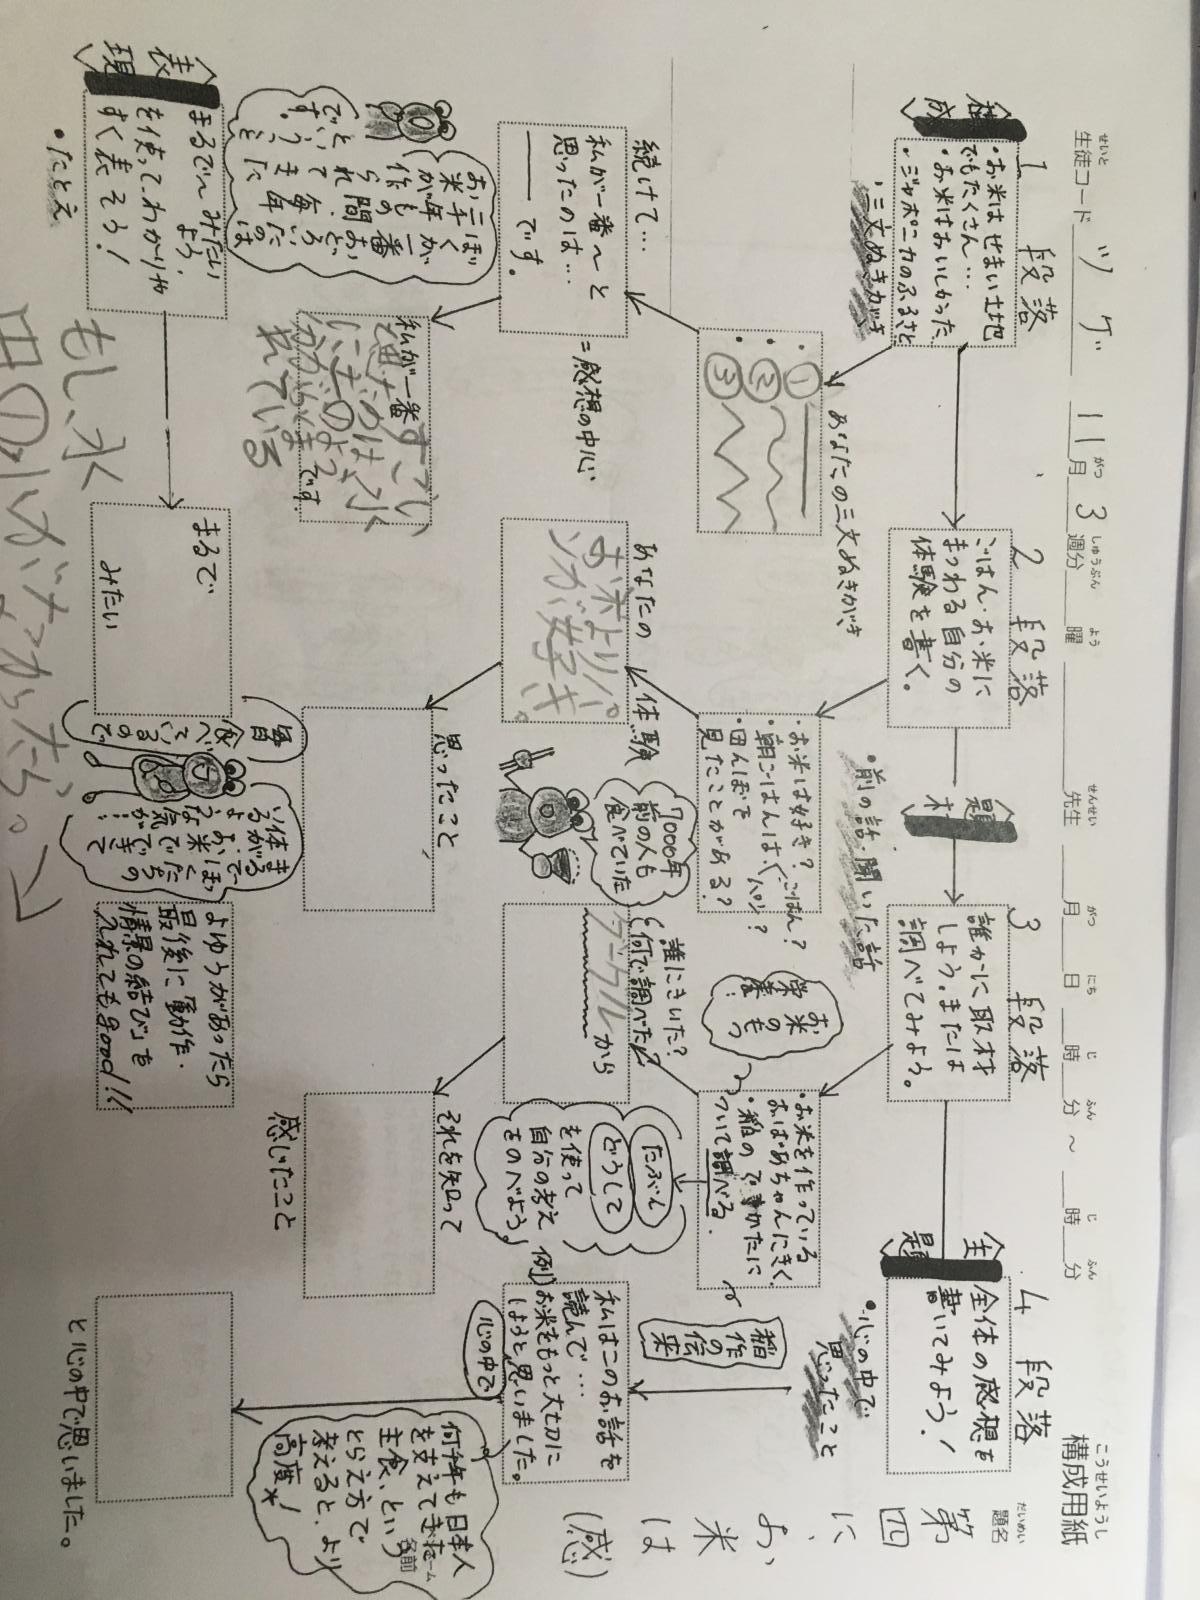 構成用紙
こうせいようし
題名
だいめい
第四
に、
お
米
は
(感)
生徒コード ツゲ 11月3週分 曜 先生 月 日 時 分 ～ 時 分
せいと がつ しゅうぶん よう せんせい がつ にち じ ふん じ ふん
構成
1段落
・お米はせまい土地
でもたくさん…
・お米はおいしかった
・ジャポニカのふるさと
・三文ぬきがき
2段落
ごはん・お米に
まつわる自分の
体験を書く。
・前の話、聞いた話
題材
3段落
誰かに取材
しよう。または
調べてみよう。
主題
4段落
全体の感想を
書いてみよう！
・心の中で
思ったこと
あなたの三文ぬきがき
・①
・②
・③
・お米は好き？
・朝ごはんは、ごはん？
パン？
・田んぼで
見たことがある？
・お米を作っている
おばあちゃんにきく
・稲のでき かたに
ついて調べる。
お米のもつ
栄養！
稲作の伝来
続けて…
私が一番〜と
思ったのは…
――です。
＝感想の中心
あなたの体験
お米よりパン
が好き。
7000年
前の人も
食べていた
誰にきいた？
何で調べた？
グーグルから
たぶん
どうして
を使って
自分の考え
をのべよう。
例)
私はこのお話を
読んで…
お米をもっと大切に
しようと思いました。
心の中で
ぼくが一番
おどろいたのは
お米が
三千年もの間、
作られて
毎年
とれます
ということ
です。
私が一番すごい
と思ったのは、水
に
れている
です。
思ったこと
それを知って
感じたこと
何千年も日本人
を支えてきた
主食、という
とらえ方で
考えると、より
高度☆！
チーム
名前
表現
まるで〜みたい
よう、
を使って、わかりや
すく表そう！
・たとえ
まるで
みたい
毎日
食べて
いるので
まるで
お米で
ぼくたちの
体ができて
いるような
気が…
よゆうがあったら
最後に動作・
情景の結び」を
入れてもgood!!
と心の中で思いました。
もし、水
田の
がなかったら。